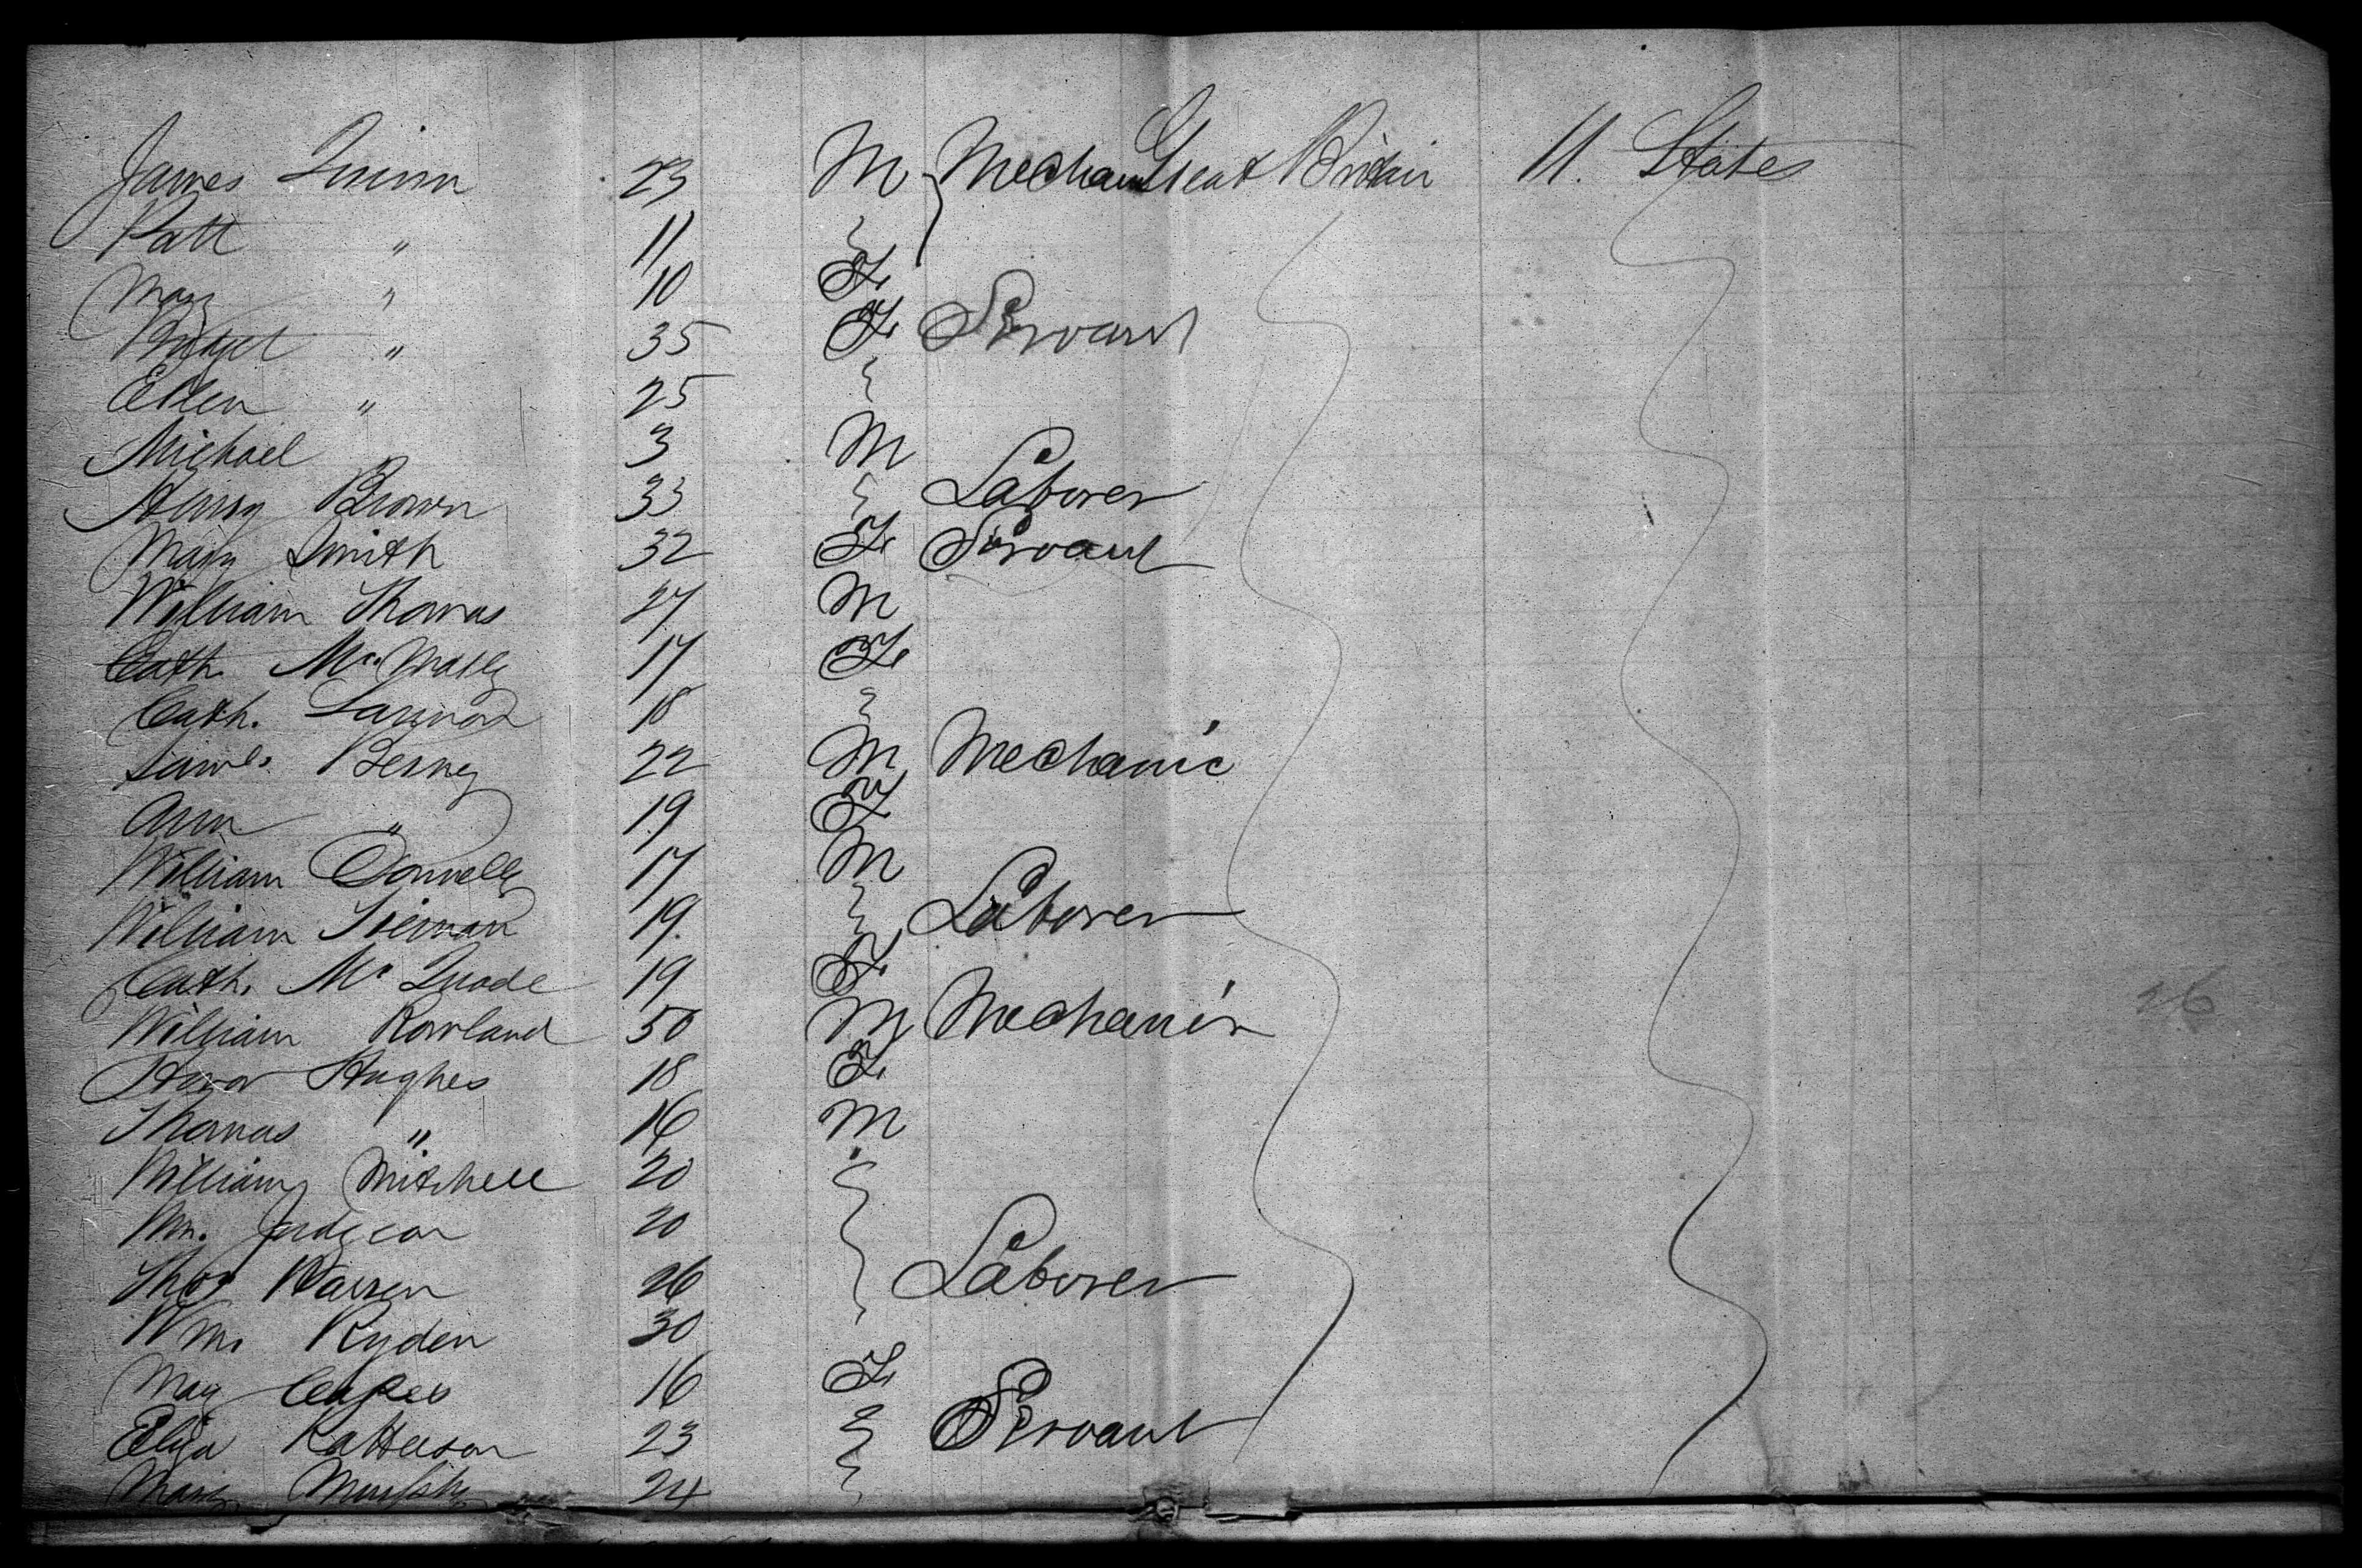 James Quinn 23 M Mechan Great Britain U. States
Patt " 11
Mary " 10 F.
Bridget " 35 F. Servant
Ellen " 25
Michael 3 M
Henry Brown 33 Laborer
Mary Smith 32 F. Servant
William Thomas 27 M
Cath. Mc. 17 F.
Cath. 18
James Berney 22 M Mechanic
Ann " 19 F
William Donnelly 17 M
William Tiernan 19. Laborer
Cath. Mc Quade 19 F.
William Rowland 50 M Mechanic
Honor Hughes 18 F.
Thomas " 16 M
William Mitchell 20 "
Wm. 20
Thos Warren 26 Laborer
Wm. Ryden 30
May 16 F.
Eliza Patterson 23 Servant
Mary Murphy 24
26